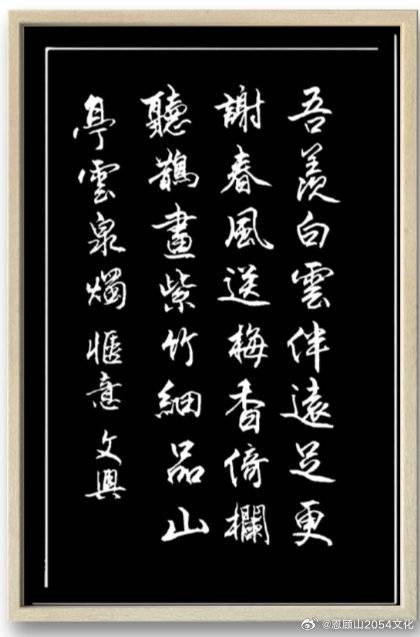 吾羨白雲伴遠足更
謝春風送梅香倚欄
聽鵲畫紫竹細品山
亭雲泉燭愜意文興
@恩顾山2054文化